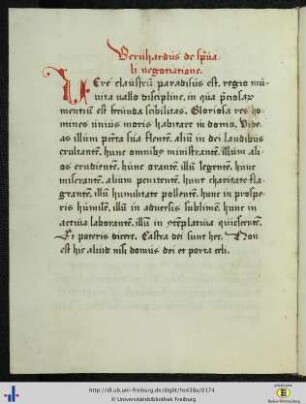 Bernhardus de spũa
li negotiatione.
Vere claustrũ paradisus est. regio mu
nita uallo discipline, in qua p̃ciosax
mentiũ est fecunda sobilitas. Gloriosa res ho
mines unius moris habitare in domo. Vide
as illum pctã sua flentẽ. aliũ in dei laudibus
exultantẽ. hunc omnibꝫ ministrantẽ. illũm ali
os erudientẽ. hũnc orantẽ. illũ legentẽ. hunc
miserantẽ. alium penitentẽ. hunc charitate fla
grantẽ. illũ humilitate pollentẽ. hunc in prospe
ris hũmilẽ. illũ in aduersis sublimẽ. hunc in
actiua laborantẽ. illũ in cõtẽplatiua quiescentẽ.
Et poteris dicere. Castra dei sunt hec. Non
est hic aliud nisi domus dei et porta celi.
http://dl.ub.uni-freiburg.de/diglit/hs438a/0174
© Universitätsbibliothek Freiburg